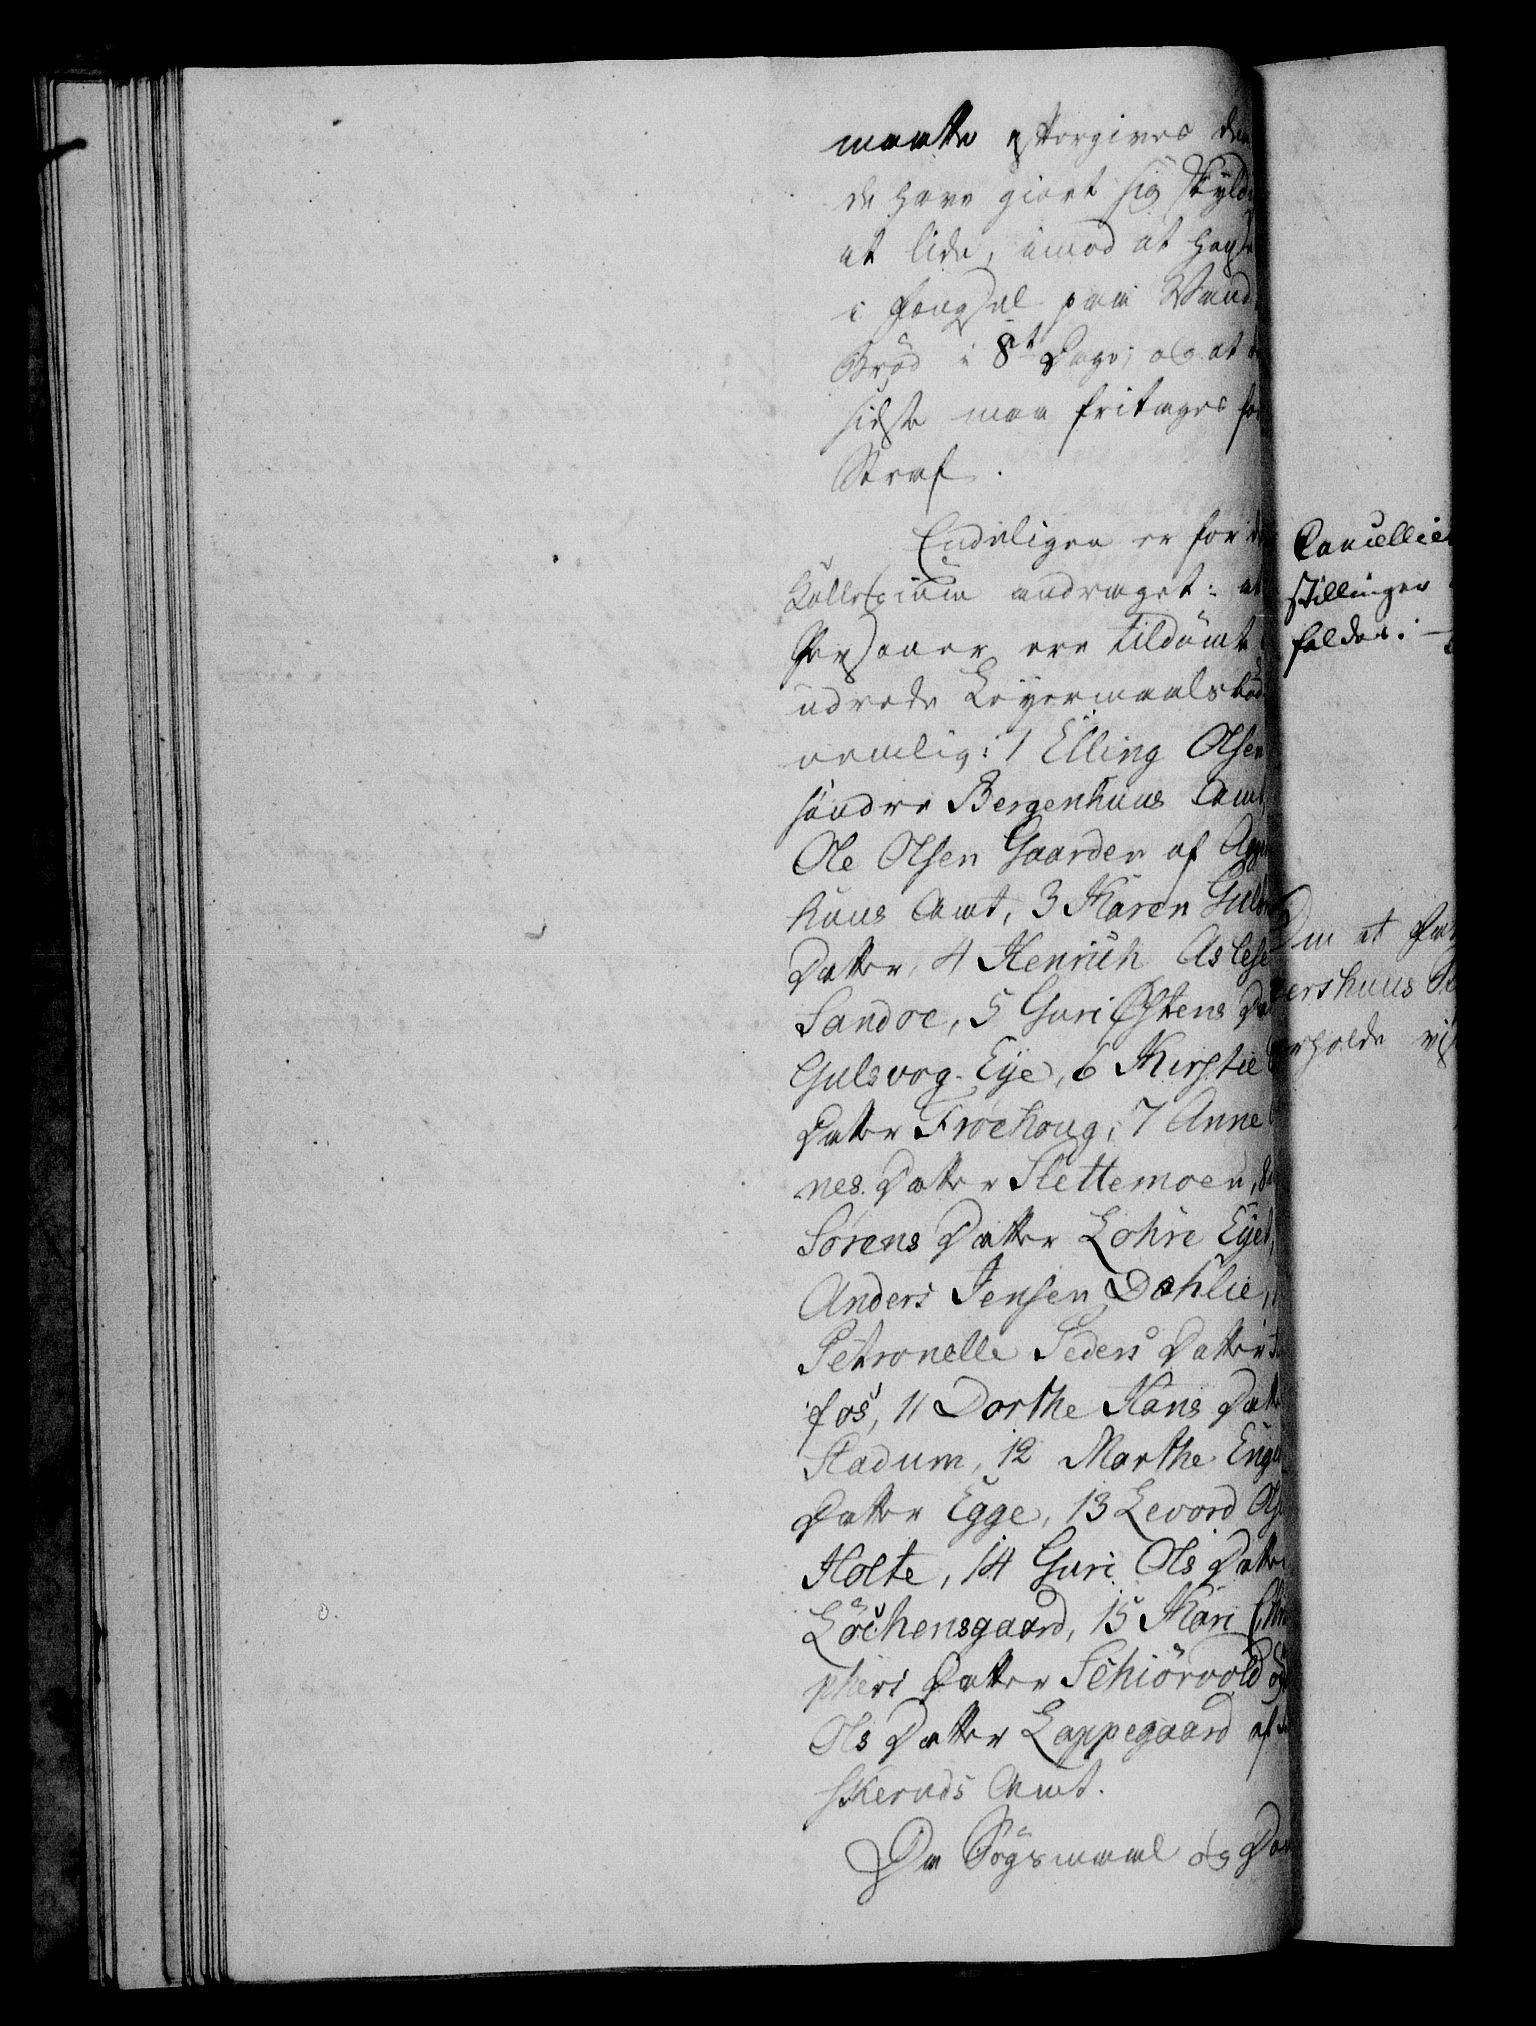 maatte eftergives den
de have giort sig skyld
at lide, imod at hen
i Fængsel paa Vand
Brød i 8te Dage; og at
sidste maa fritages for
Straf.
Endeligen er for
Collegium andraget: at
Personer ere tildömt
udrede Leyermaalsbød
nemlig: 1 Elling Olsen
söndre Bergenhuus Amt
Ole Olsen Gaarder af Agge
huus Amt, 3 Karen Gulbr
Datter, 4 Henrich Aslese
Sandoe, 5 Guri Østens Da
Gulsvog-Eye, 6 Kirstie
Datter Froehoug, 7 Anne
nes Datter Slettemoen, 8
Sörens Datter Lohre Eyet,
Anders Jensen Dæhlie,
Petronelle Peders Datter
fos, 11 Dorthe Hans Dat
Stadum, 12 Marthe Enge
Datter Egge, 13 Levord Ols
Holte, 14 Guri Ols Datte
Löchensgaard, 15 Kari Chri
phers Datter Schiörvold og
Ols Datter Lappegaard af
skeruds Amt.
Da Sögsmaal og Dom
Cancellie
stillinger
falder.
Om at
ershuus
erholde